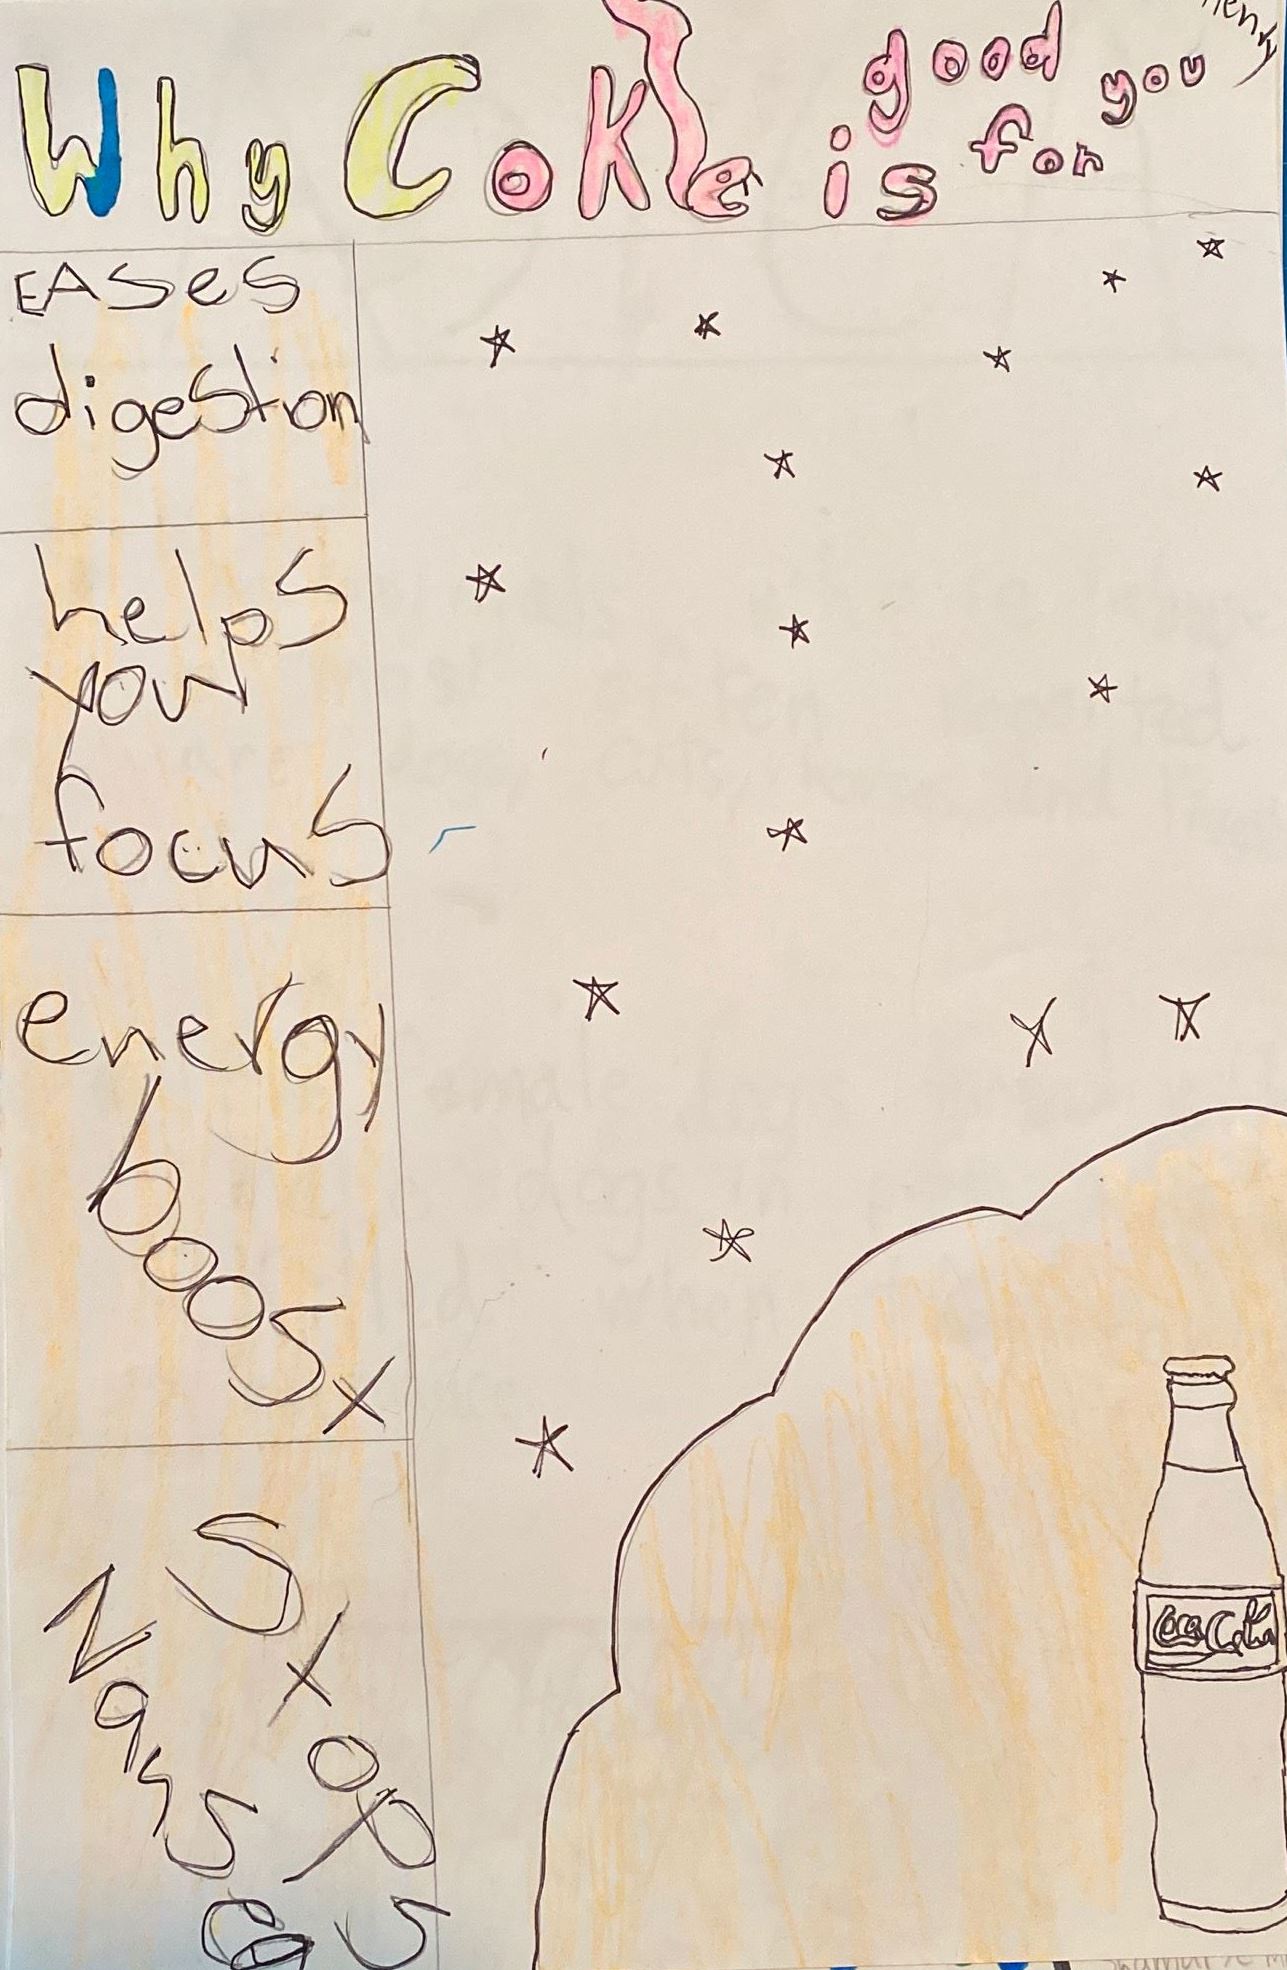 Why Coke is good for you
Henry
EAses
digestion
helps
you
focus
energy
boost
Stops
Nausea
Coca Cola